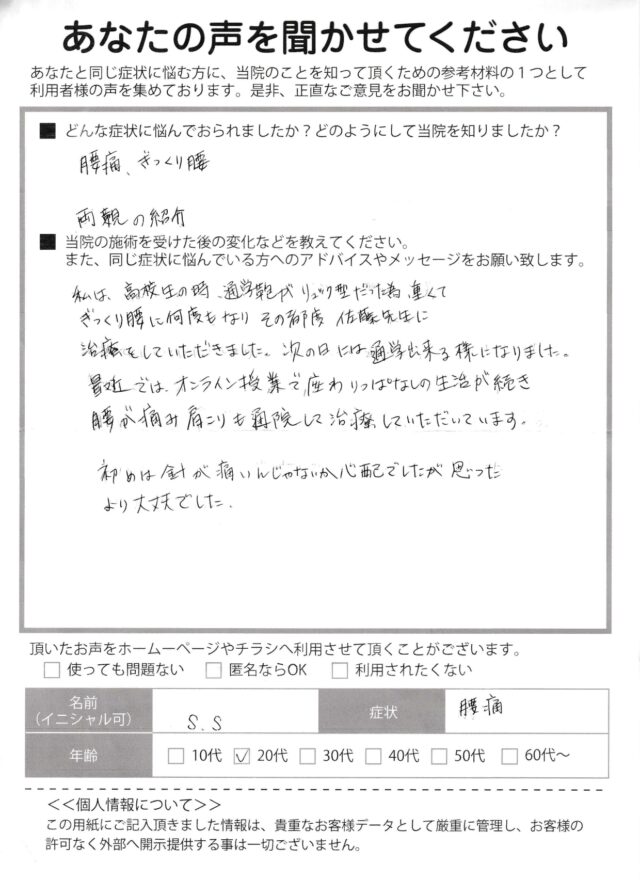 あなたの声を聞かせてください
あなたと同じ症状に悩む方に、当院のことを知って頂くための参考材料の1つとして
利用者様の声を集めております。是非、正直なご意見をお聞かせ下さい。
■ どんな症状に悩んでおられましたか?どのようにして当院を知りましたか?
腰痛、ぎっくり腰
両親の紹介
■ 当院の施術を受けた後の変化などを教えてください。
また、同じ症状に悩んでいる方へのアドバイスやメッセージをお願い致します。
私は、高校生の時、通学鞄がリュック型だった為、重くて
ぎっくり腰に何度もなり その都度 佐藤先生に
治療をしていただきました。次の日には通学出来る様になりました。
最近では、オンライン授業で、座わりっぱなしの生活が続き
腰が痛み肩こりも通院して治療していただいています。
初めは針が痛いんじゃないか心配でしたが思った
より大丈夫でした.
頂いたお声をホームーページやチラシへ利用させて頂くことがございます。
□ 使っても問題ない □ 匿名ならOK □ 利用されたくない
名前
(イニシャル可) S.S 症状 腰痛
年齢 □ 10代 ☑ 20代 □ 30代 □ 40代 □ 50代 □ 60代〜
<<個人情報について>>
この用紙にご記入頂きました情報は、貴重なお客様データとして厳重に管理し、お客様の
許可なく外部へ開示提供する事は一切ございません。